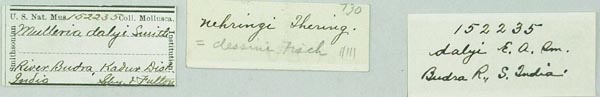 U. S. Nat. Mus. 152235 Coll. Mollusca.
Mulleria dalyi Smith
River Budra, Kadur Dist.
India
Fulton
Smithsonian
Institution
730
nehringi Ihering.
=
152235
dalyi E. A. Sm.
Budra R., S. India.